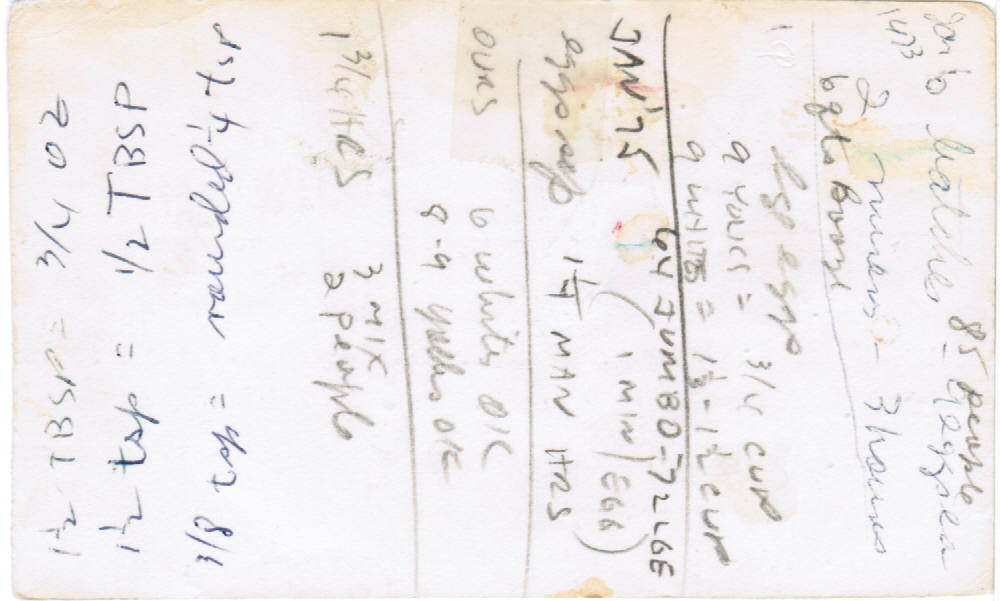 85 people
6 batches - 9 eggs ea
2 mixers - 3 hours
6 qts Booze
lge eggs
9 YOLKS = 3/4 CUP
9 WHITES = 1 1/3 - 1 1/2 CUP
JAN '75 64 JUMBO = 72 LGE
(1 MIN/EGG)
eggs sep 1 1/4 MAN HRS
OURS 6 whites OK
8-9 yolks OK
1 3/4 HRS 3 MIX
2 people
1 1/2 TBSP = 3/4 OZ
1 1/2 tsp = 1/2 TBSP
3/8 tsp = rounded 1/4 tsp